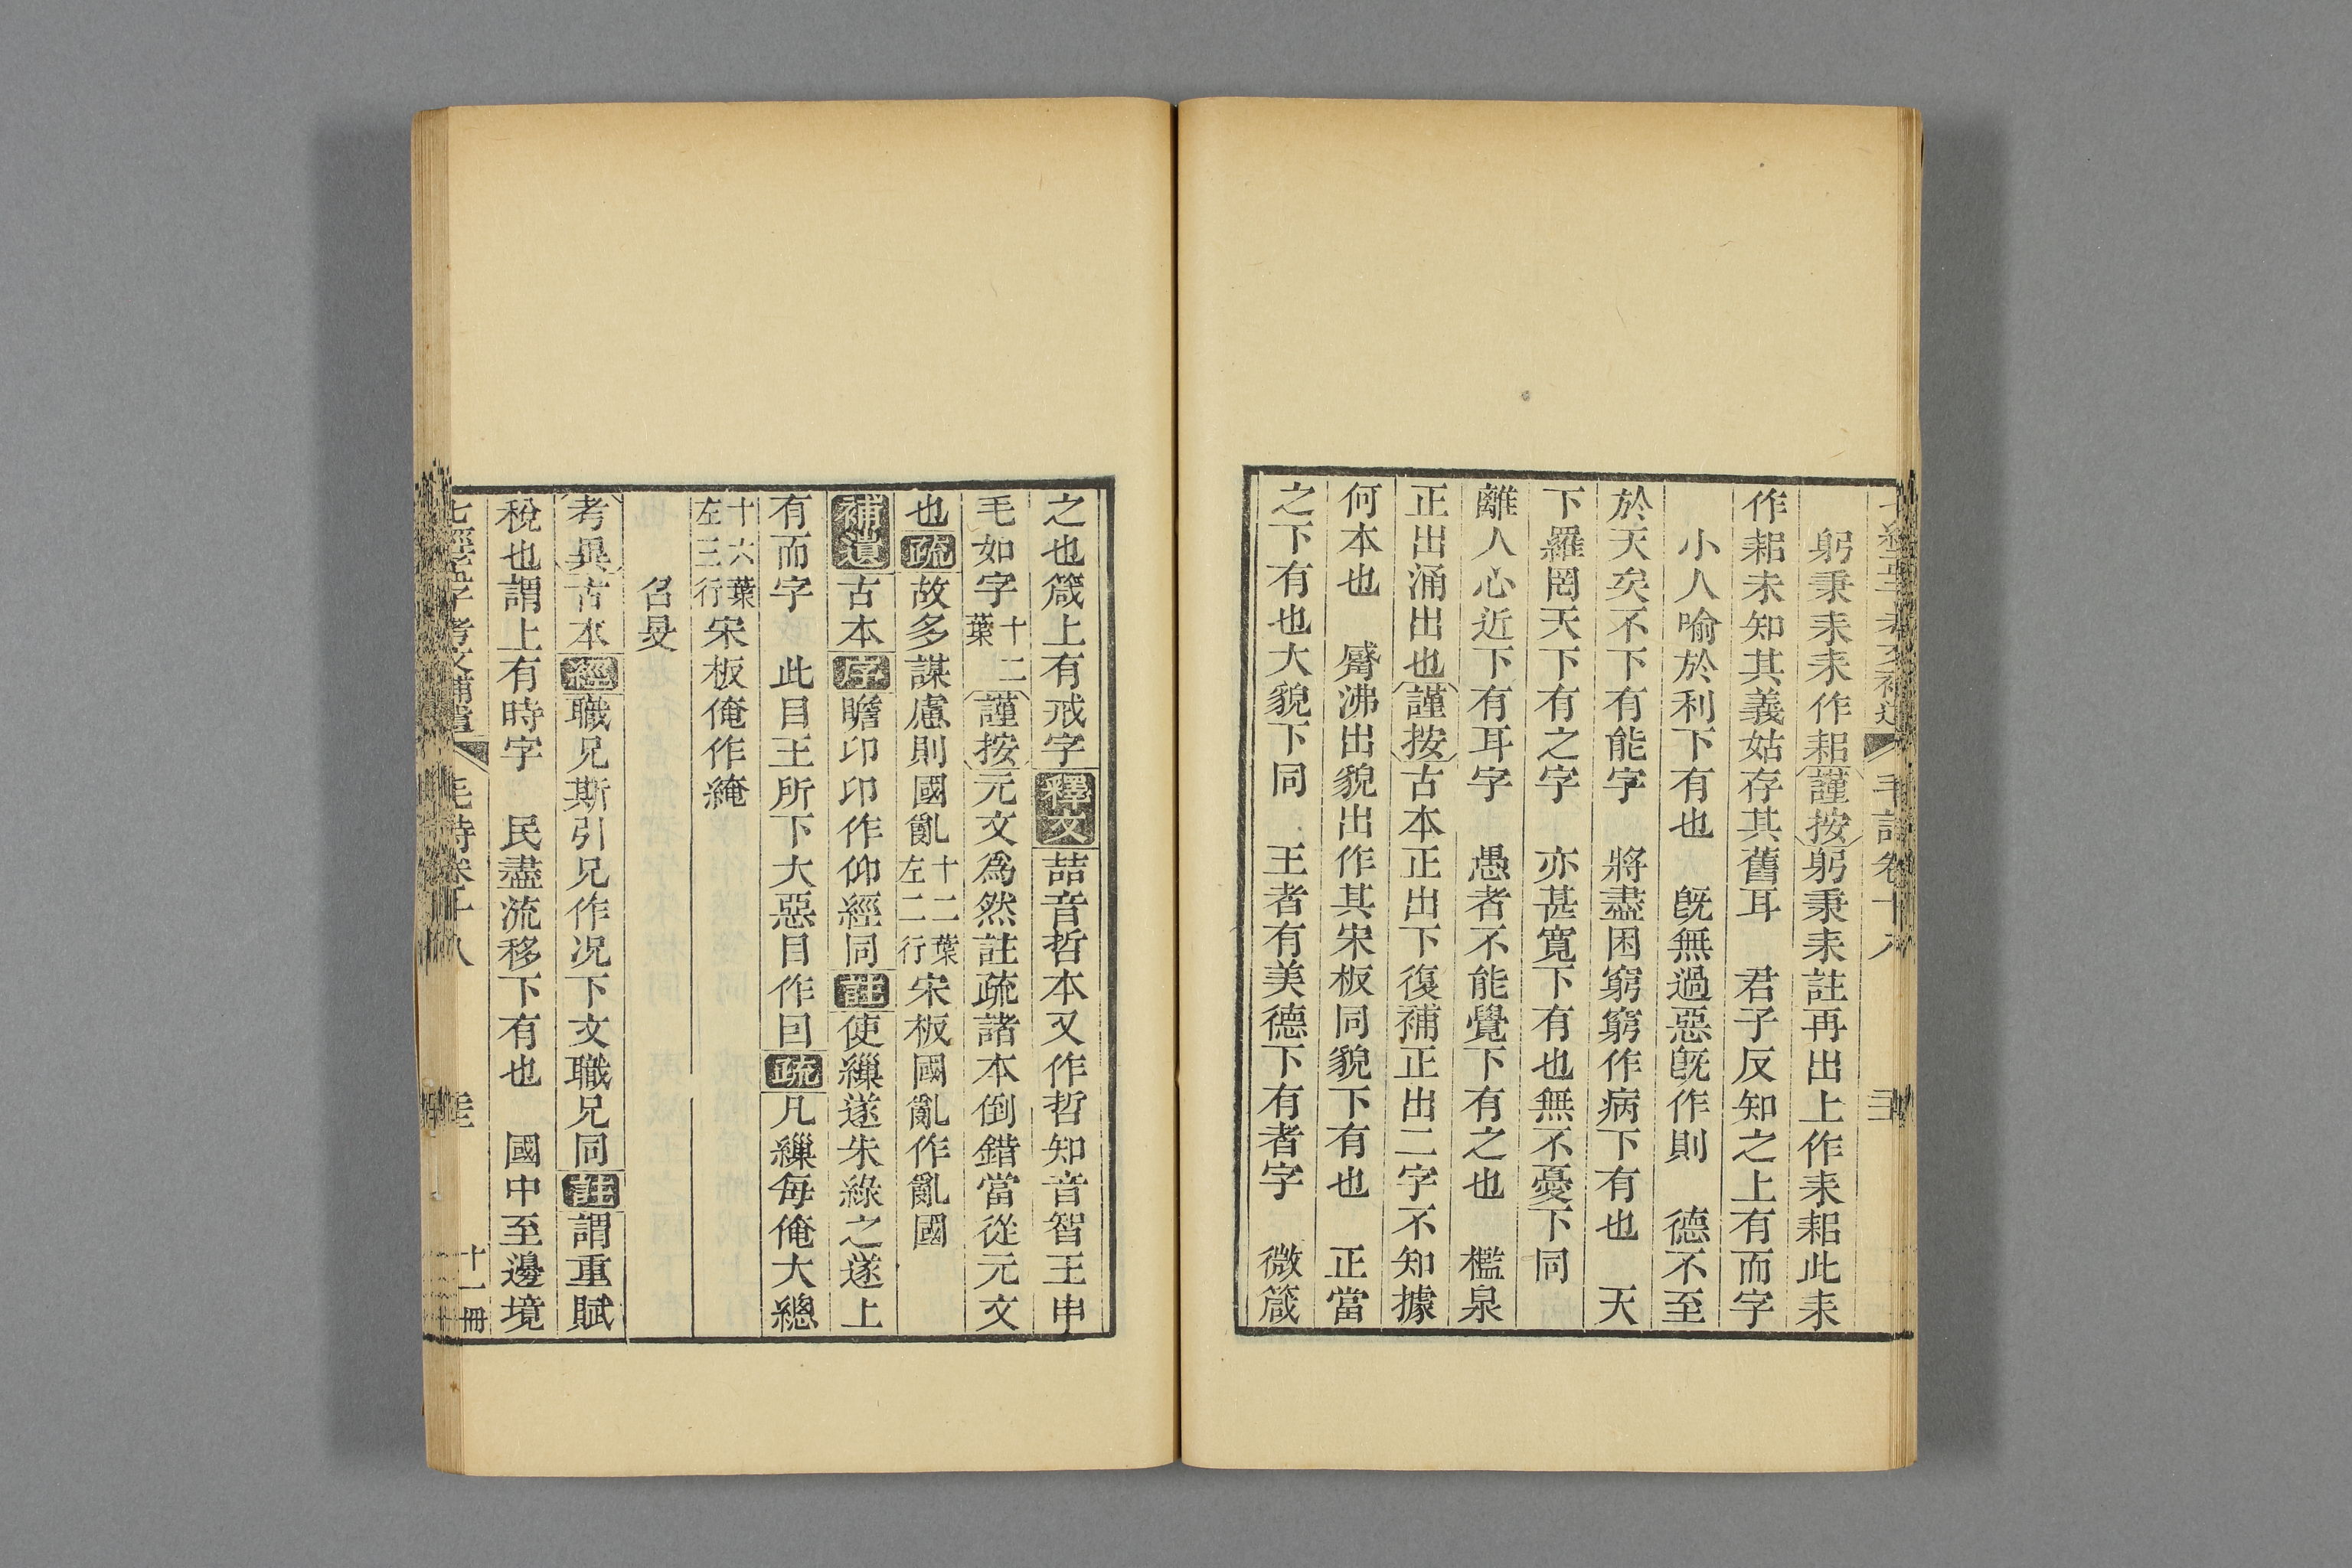 躬秉耒耒作耜謹按躬秉耒註再出上作耒耜此耒
作耜未知其義姑存其舊耳　君子反知之上有而字
小人喻於利下有也　既無過惡既作則　德不至
於天矣不下有能字　將盡困窮窮作病下有也　天
下羅罔天下有之字　亦甚寬下有也無不憂下同
離人心近下有耳字　愚者不能覺下有之也　檻泉
正出涌出也謹按古本正出下復補正出二字不知據
何本也　觱沸出貌出作其宋板同貌下有也　正當
之下有也大貌下同　王者有美德下有者字　微箴
之也箴上有戒字釋文喆音哲本又作哲知音智王申
毛如字十二葉謹按元文為然註疏諸本倒錯當從元文
也疏故多謀慮則國亂十二葉左二行宋板國亂作亂國
補遺古本序瞻卬卬作仰經同註使繅遂朱綠之遂上
有而字　此目王所下大惡目作囙疏凡繅每俺大總
十六葉左三行宋板俺作淹
召旻
考異古本經職兄斯引兄作況下文職兄同註謂重賦
稅也謂上有時字　民盡流移下有也　國中至邊境
七經孟子考文補遺　毛詩卷十八　十一冊